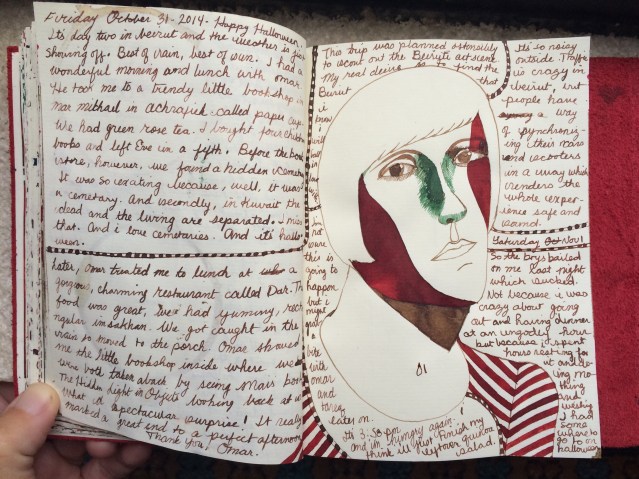 Friday October 31-2014. Happy Halloween.
It's day two in beirut and the weather is fine
showing off. Best of rain, best of sun. I had a
wonderful morning and lunch with omar
He took me to a trendy little bookshop in
mar mithail in achrafieh called paper cup
We had green rose tea. I bought four children
boobs and left Eve in a fifth. Before the book
store, however, we found a hidden cemetery
It was so exating because, well, it was
a cemetary. And secondly, in Kuwait the
dead and the living are separated. I miss
that. And i love cemetaries. And it's hallo
ween.
Later, omar treated me to lunch at a
gorgeous, charming restaurant called Dar. The
food was great, I've had yummy, rect
ngular imsakhan. We got caught in the
rain so moved to the porch. Omar showed
me the little bookshop inside where we
were both taken aback by seeing Mai's book
The Hidden Light in Objects looking back at
what a spectacular surprise! It really
marked a great end to a perfect afternoon
Thank you, Omar.
This trip was planned ostensibly
to scout out the Beiruti art scene.
My real desire is to find the
Beirut that
i
know
i
will
fall
in
I'm
not
sure
this is
going to
happen
but i
might
grab
a
bite
with
omar
and
tarek
later on.
It's 3:30 pm
and i'm hungry again!
think i'll just finish my
leftover quinoa
salad.
It's so noisy
outside. Traffic
is crazy in
beirut, but
people have
a way
of synchroniz
ing their cars
and scooters
in a way which
renders the
whole exper-
ience safe and
sound.
Saturday Nov 1
So the boys bailed
on me last night
which sucked.
Not because i was
crazy about going
out and having dinner
at an ungodly hour
but because i spent
hours resting for
it and do
ing no-
thing
and
I had
some
where to
go to on
halloween